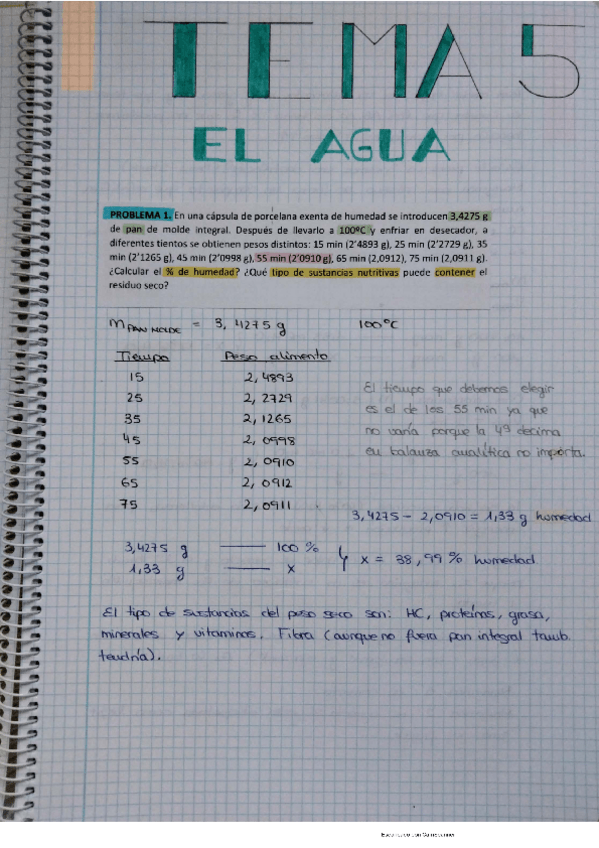 TEMA 5
EL AGUA
PROBLEMA 1. En una cápsula de porcelana exenta de humedad se introducen 3,4275 g
de pan de molde integral. Después de llevarlo a 100ºC y enfriar en desecador, a
diferentes tientos se obtienen pesos distintos: 15 min (2'4893 g), 25 min (2'2729 g), 35
min (2'1265 g), 45 min (2'0998 g), 55 min (2'0910 g), 65 min (2,0912), 75 min (2,0911 g).
¿Calcular el % de humedad? ¿Qué tipo de sustancias nutritivas puede contener el
residuo seco?
m PAN MOLDE = 3,4275 g 100ºC
Tiempo Peso alimento
15 2,4893
25 2,2729
35 2,1265
45 2,0998
55 2,0910
65 2,0912
75 2,0911
El tiempo que debemos elegir
es el de los 55 min ya que
no varía porque la 4ª decima
en balanza analítica no importa.
3,4275 - 2,0910 = 1,33 g humedad
3,4275 g —— 100 %
1,33 g —— x
x = 38,99 % humedad
El tipo de sustancias del peso seco son: HC, proteínas, grasa,
minerales y vitaminas. Fibra (aunque no fuera pan integral tamb.
tendría).
Escaneado con CamScanner